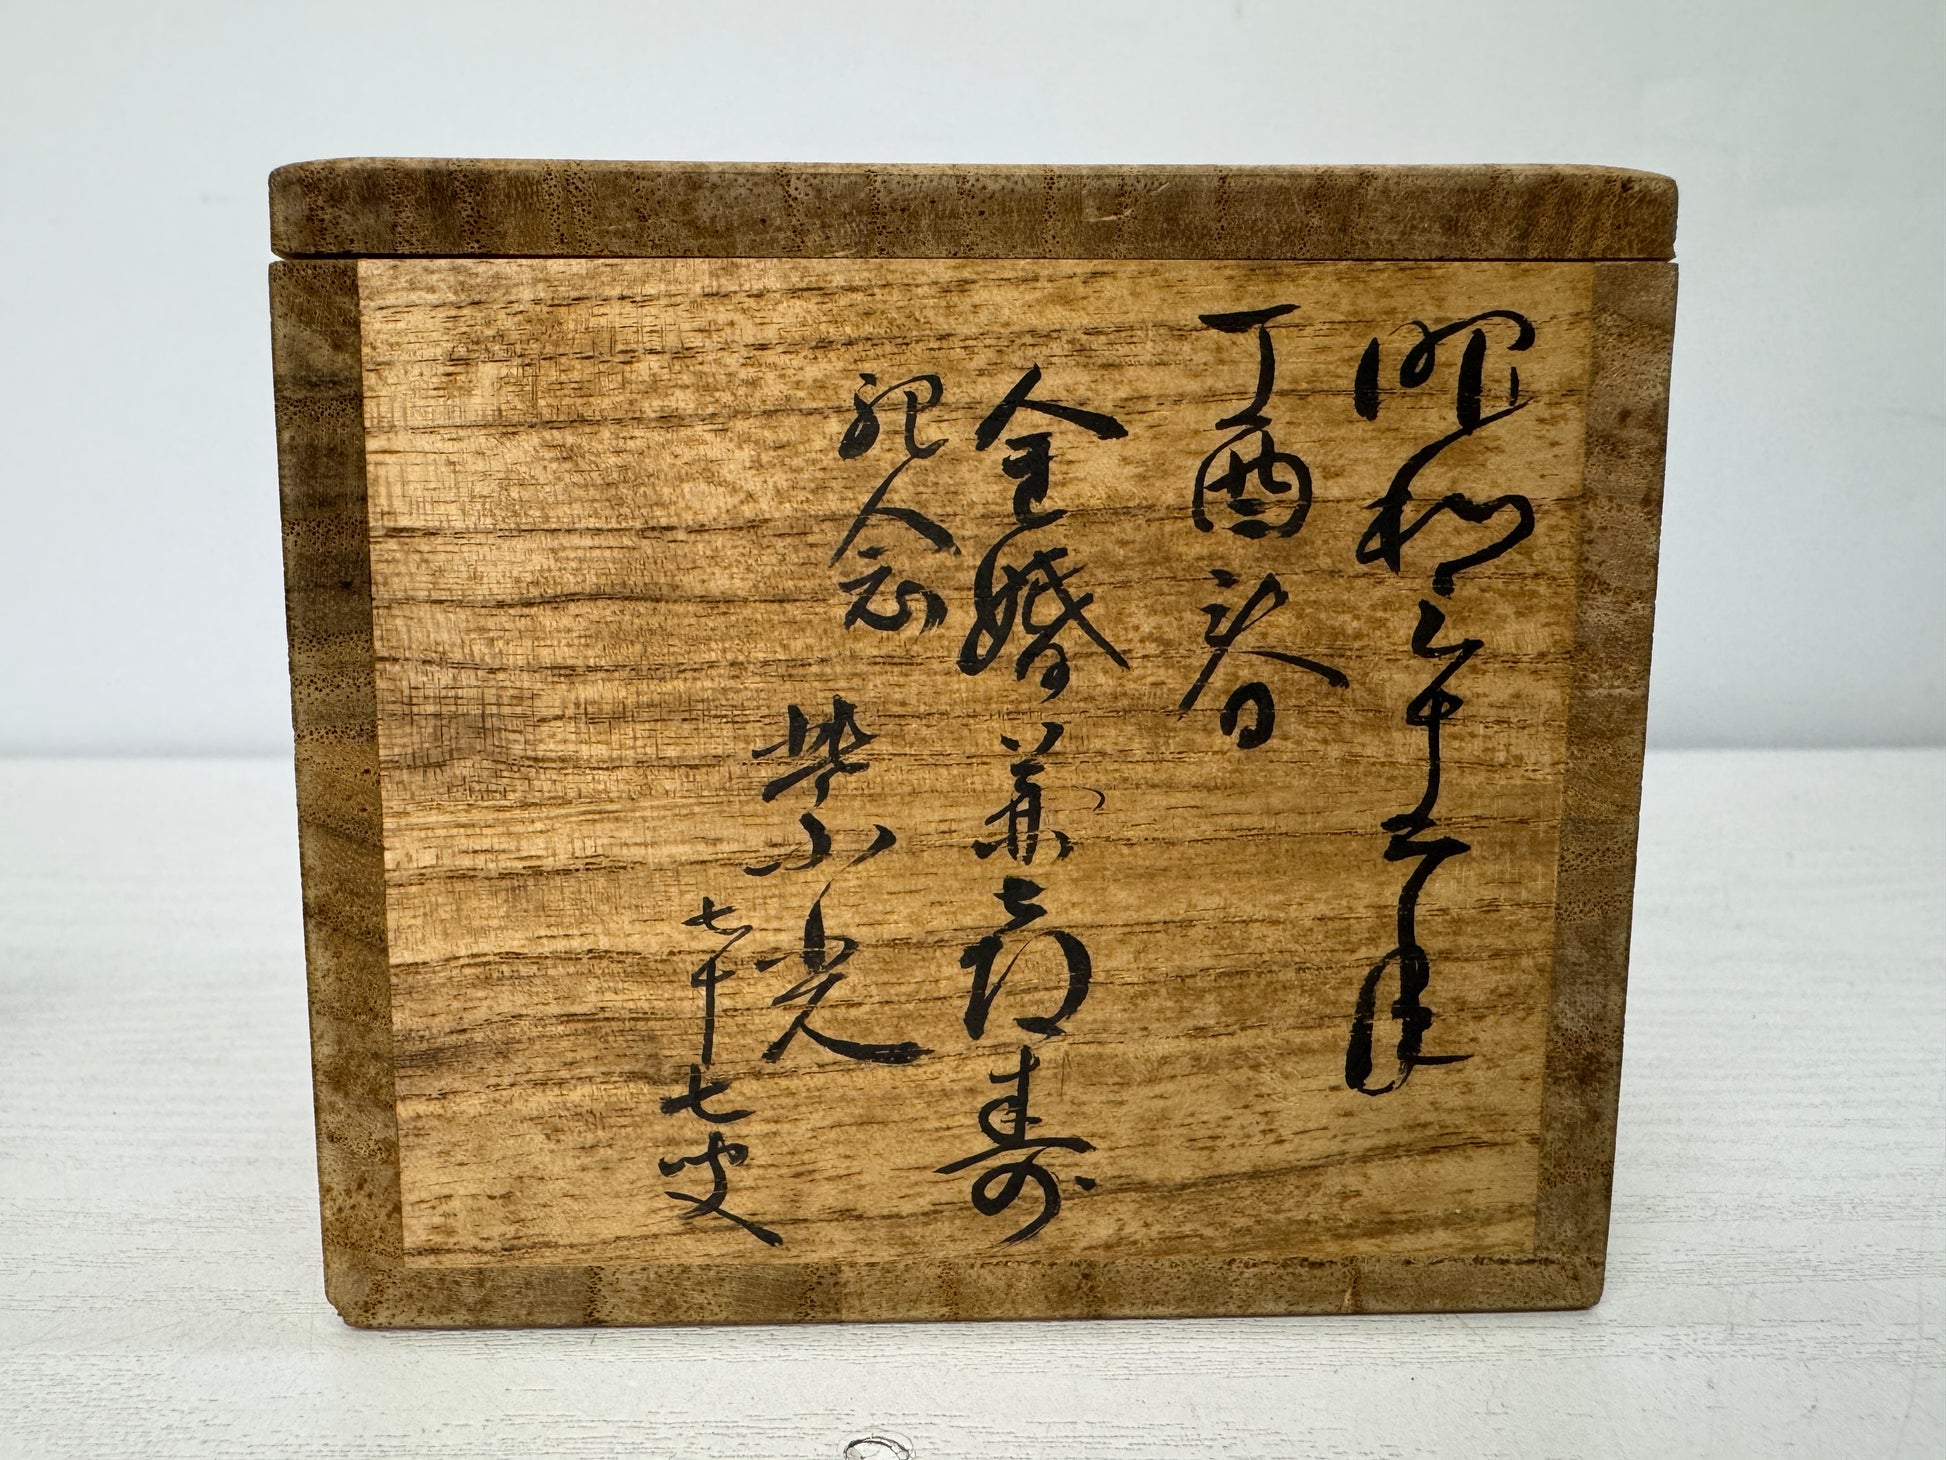 昭和三十二年
丁酉春
金婚兼喜寿
記念
柴山光
七十七叟